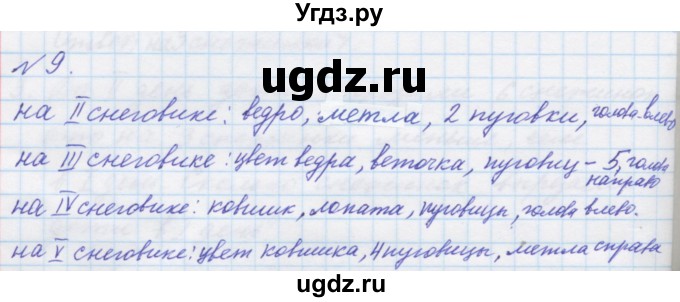 Угдз.ру
ugdz.ru
№9.
на II снеговике: ведро, метла, 2 пуговки, голова-влево
на III снеговике: цвет ведра, веточка, пуговиц - 5, голова направо
на IV снеговике: ковшик, лопата, пуговицы, голова влево.
на V снеговике: цвет ковшика, 4 пуговицы, метла справа
ugdz.ru